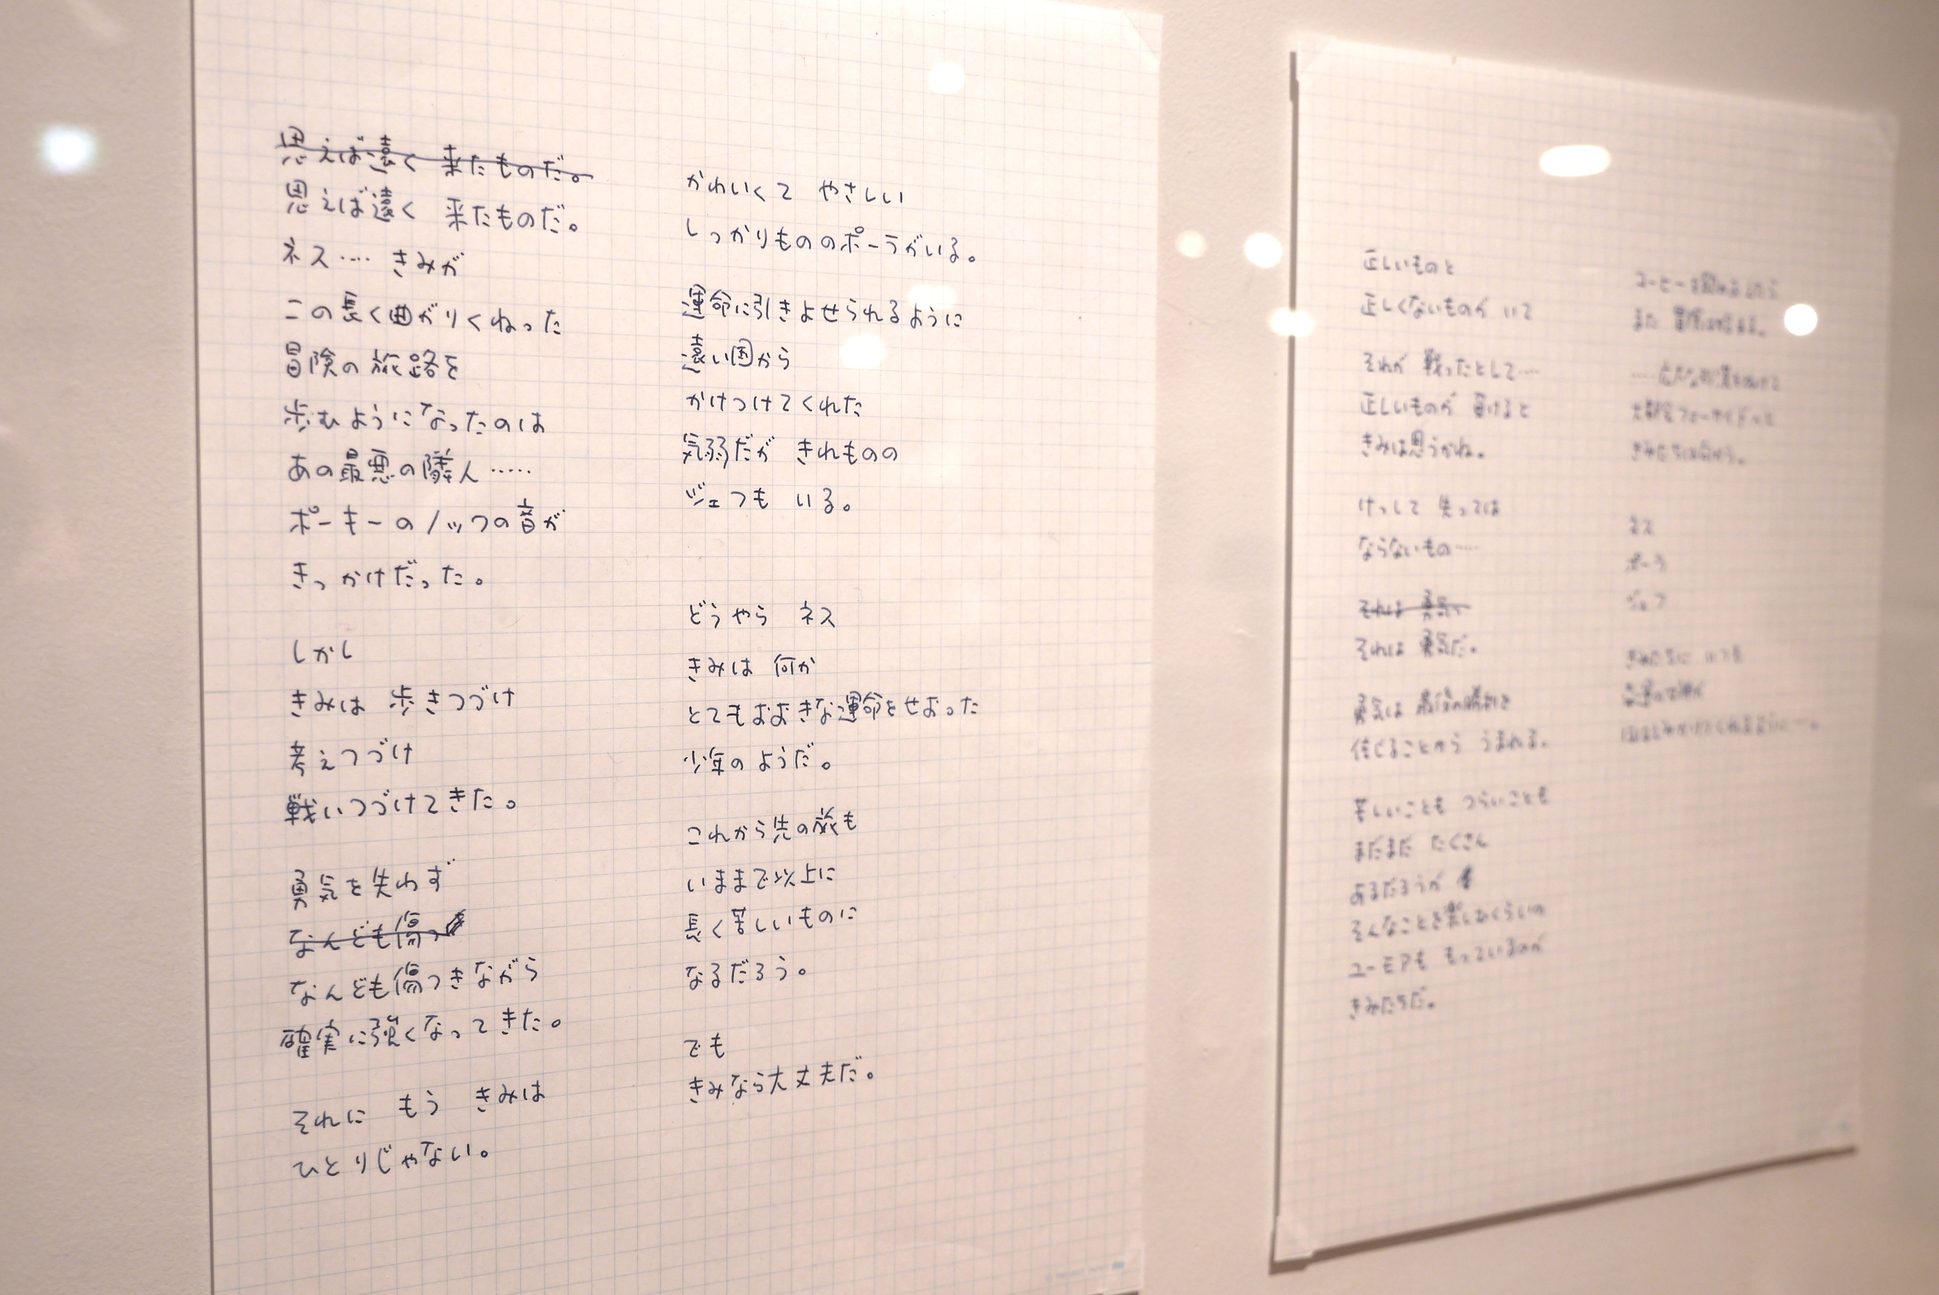 思えば遠く 来たものだ。
思えば遠く 来たものだ。
ネス‥‥ きみが
この長く曲がりくねった
冒険の旅路を
歩むようになったのは
あの最悪の隣人‥‥‥
ポーキーのノックの音が
きっかけだった。
しかし
きみは 歩きつづけ
考えつづけ
戦いつづけてきた。
勇気を失わず
なんども傷っ
なんども傷つきながら
確実に強くなってきた。
それに もう きみは
ひとりじゃない。
かわいくて やさしい
しっかりもののポーラがいる。
運命に引きよせられるように
遠い国から
かけつけてくれた
気弱だが きれものの
ジェフも いる。
どうやら ネス
きみは 何か
とてもおおきな運命をせおった
少年のようだ。
これから先の旅も
いままで以上に
長く苦しいものに
なるだろう。
でも
きみなら大丈夫だ。
正しいものと
正しくないものが いて
それが 戦ったとして‥‥
正しいものが 負けると
きみは思うかね。
けっして 失っては
ならないもの‥‥
それは 勇気
それは 勇気だ。
勇気は 最後の勝利を
信じることから うまれる。
苦しいことも つらいことも
まだまだ たくさん
あるだろうが
そんなことを楽しむくらいの
ユーモアも もっているのが
きみたちだ。
コーヒーを飲みおえたら
また 冒険は始まる。
大都会フォーサイドへと
きみたちは向かう。
ネス
ポーラ
ジェフ
きみたちに いつも
ほほえみかけてくれるように‥‥。